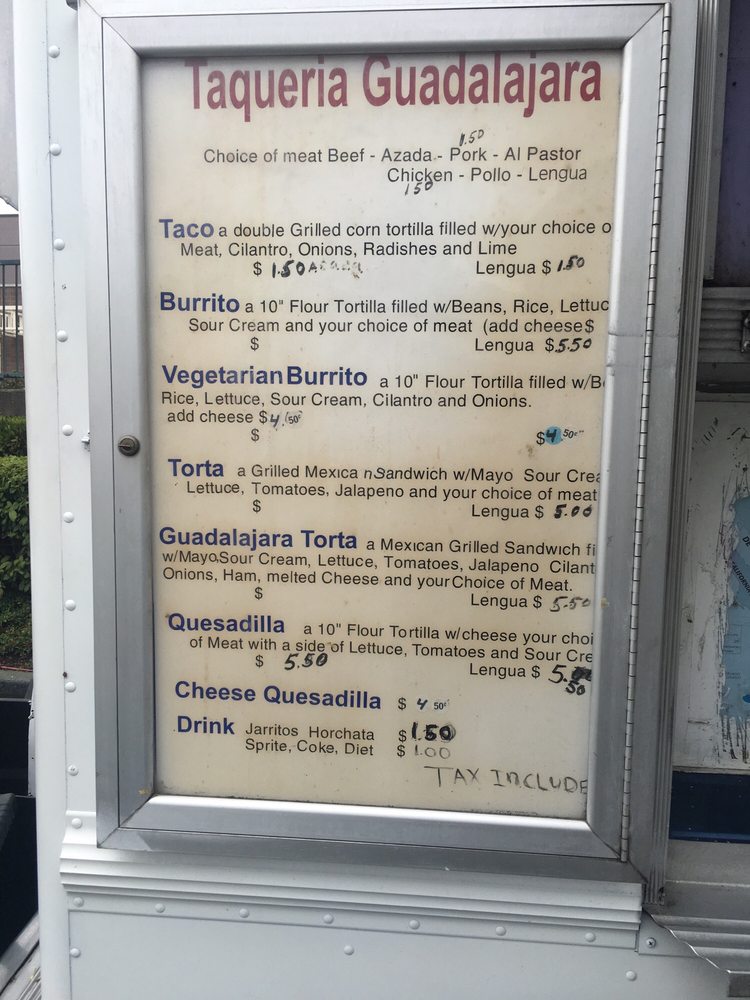 Taqueria Guadalajara
1.50
Choice of meat Beef - Azada - Pork - Al Pastor
Chicken - Pollo - Lengua
150
Taco a double Grilled corn tortilla filled w/your choice o
Meat, Cilantro, Onions, Radishes and Lime
$ 1.50 Azada Lengua $ 1.50
Burrito a 10" Flour Tortilla filled w/Beans, Rice, Lettuc
Sour Cream and your choice of meat (add cheese $
$ Lengua $5.50
Vegetarian Burrito a 10" Flour Tortilla filled w/B
Rice, Lettuce, Sour Cream, Cilantro and Onions.
add cheese $4.50¢
$ $4 50¢
Torta a Grilled Mexica n Sandwich w/Mayo Sour Crea
Lettuce, Tomatoes, Jalapeno and your choice of meat
$ Lengua $ 5.00
Guadalajara Torta a Mexican Grilled Sandwich fi
w/Mayo,Sour Cream, Lettuce, Tomatoes, Jalapeno Cilant
Onions, Ham, melted Cheese and your Choice of Meat.
$ Lengua $ 5.50
Quesadilla a 10" Flour Tortilla w/cheese your choi
of Meat with a side of Lettuce, Tomatoes and Sour Cre
$ 5.50 Lengua $ 5.
50
Cheese Quesadilla $ 4 50¢
Drink Jarritos Horchata $1.50
Sprite, Coke, Diet $ 1.00
TAX INCLUDE